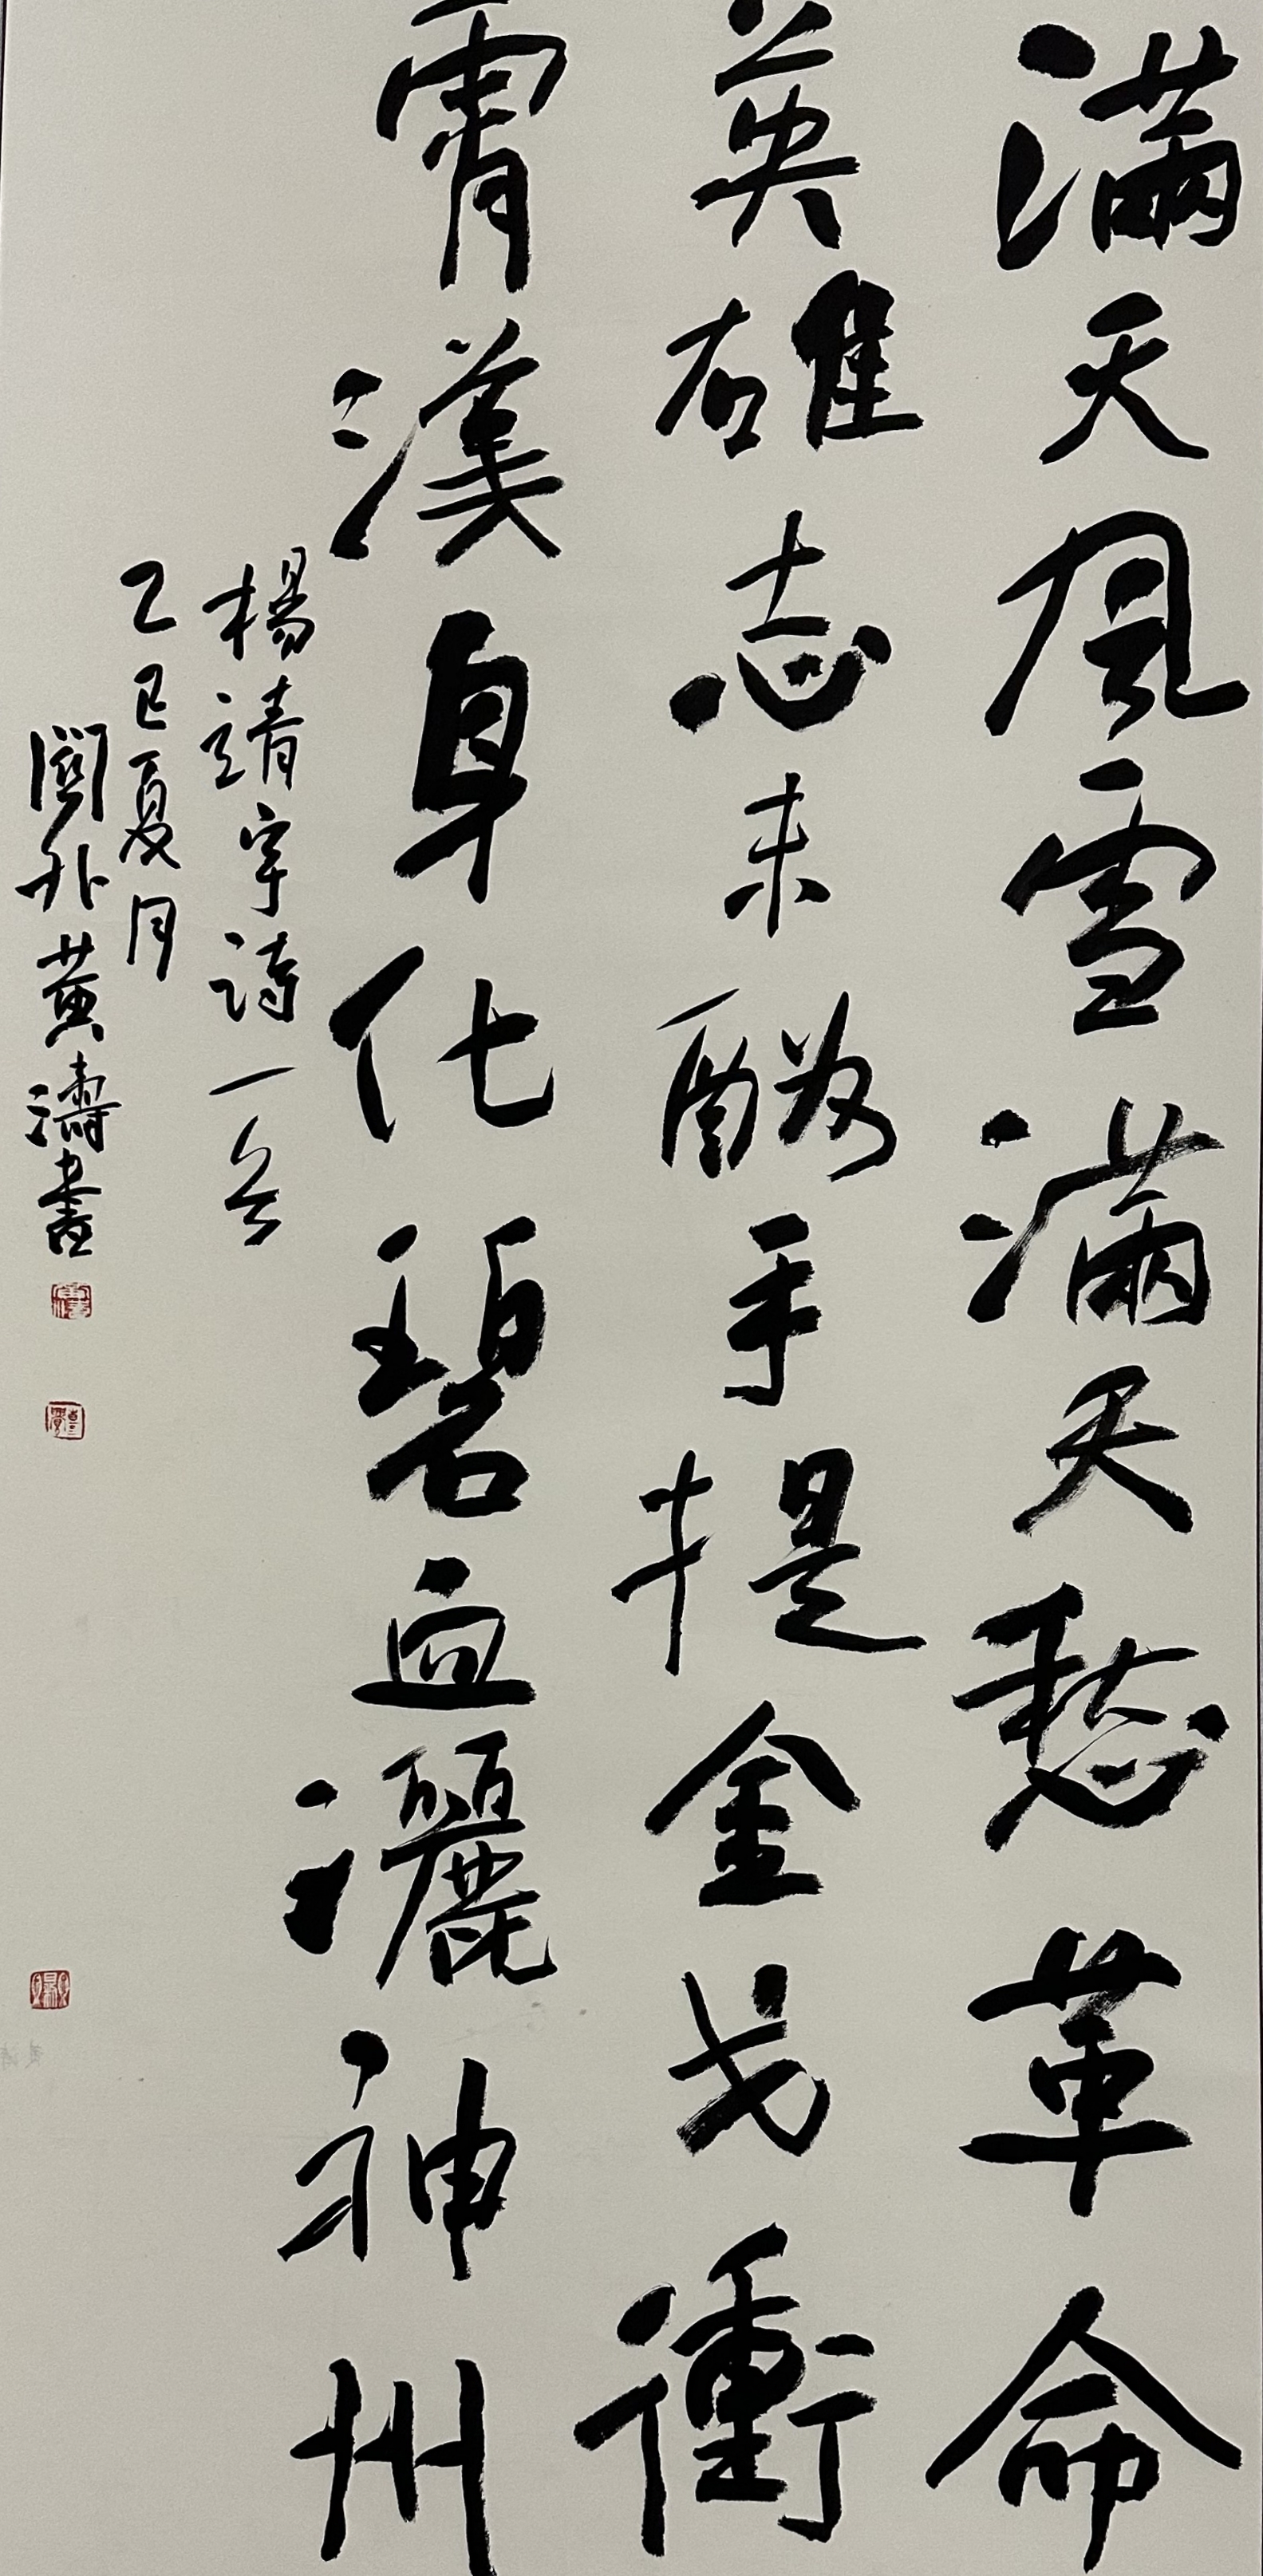 滿天風雪滿天愁革命
英雄志未酬手提金戈衝
霄漢身化碧血灑神州
楊靖宇詩一首
乙巳夏月
關外黃濤書